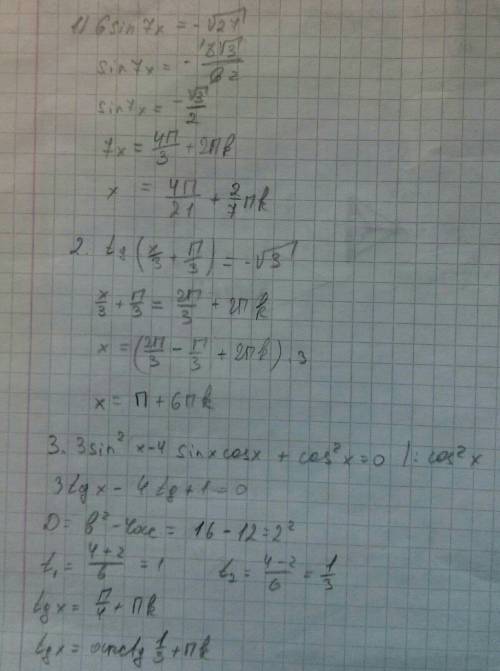 1) 6 sin 7x = -√27
sin 7x = - 3√3/6 2
sin 7x = -√3/2
7x = 4π/3 + 2πk
x = 4π/21 + 2/7 πk
2. tg (x/3 + π/3) = -√3
x/3 + π/3 = 2π/3 + 2πk
x = (2π/3 - π/3 + 2πk) · 3
x = π + 6πk
3. 3 sin² x - 4 sin x cos x + cos² x = 0 |: cos² x
3 tg x - 4 tg + 1 = 0
D = b² - 4ac = 16 - 12 = 2²
t₁ = 4+2/6 = 1 t₂ = 4-2/6 = 1/3
tg x = π/4 + πk
tg x = arctg 1/3 + πk